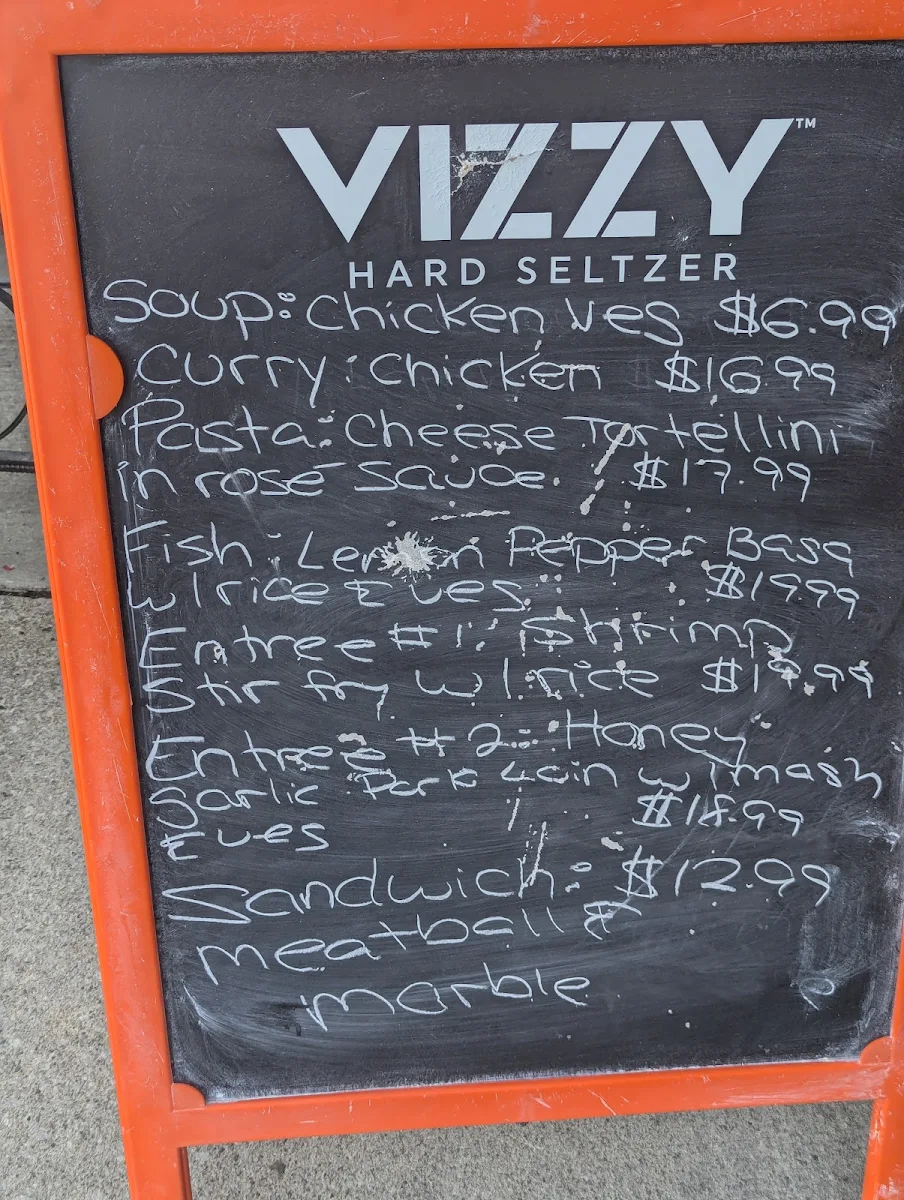 VIZZY™
HARD SELTZER
Soup: Chicken Veg $6.99
Curry: Chicken $16.99
Pasta: Cheese Tortellini
in rosé sauce. $17.99
Fish: Lemon Pepper Basa
w/rice & veg $19.99
Entree #1: Shrimp
Stir fry w/rice $19.99
Entree #2: Honey
Garlic Pork Loin w/mash
& veg $18.99
Sandwich: $12.99
meatball &
marble